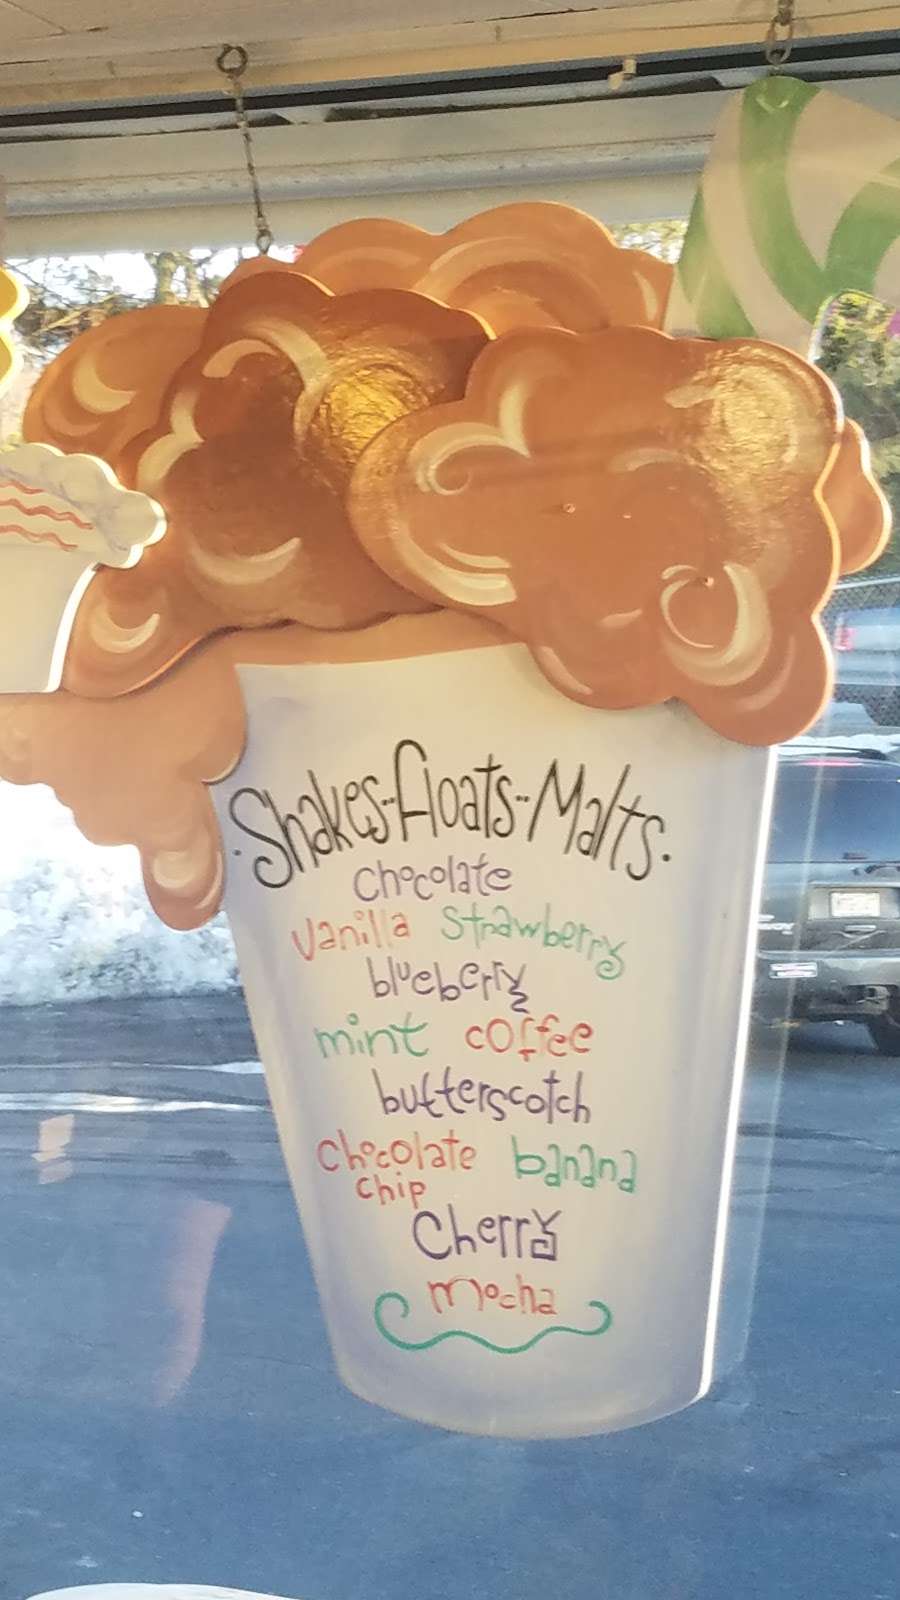 Shakes--Floats--Malts.
Chocolate
vanilla strawberry
blueberry
mint coffee
butterscotch
chocolate banana
chip
Cherry
mocha